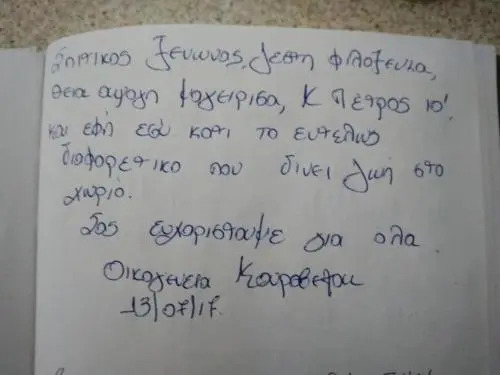 Σπιτικος ξενωνας, ζεστη φιλοξενια,
θεια αγαθη μαγειρισα, Κ Πετρος 10'
και εφη εσυ κατι το εντελως
διαφορετικο που δινει ζωη στο
χωριο.
Σας ευχαριστουμε για ολα.
Οικογενεια
13/07/17.